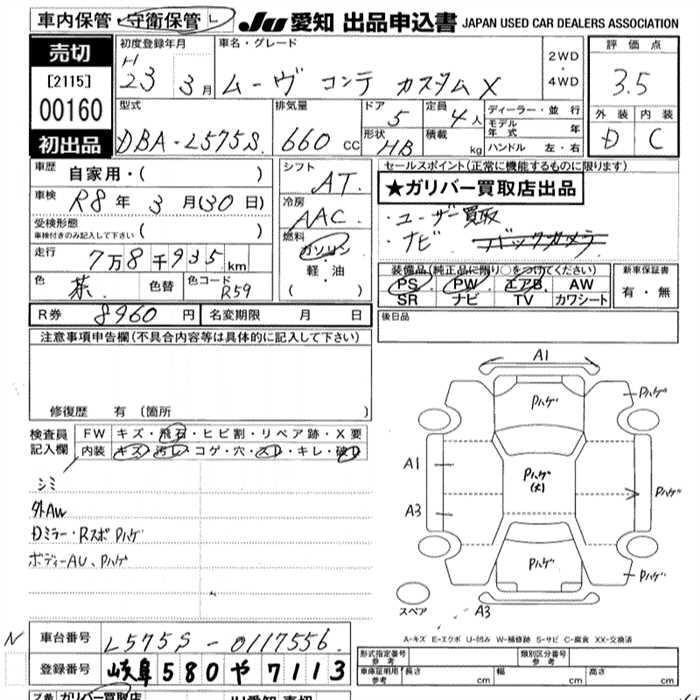 車内保管・守衛保管 L
JU 愛知 出品申込書 JAPAN USED CAR DEALERS ASSOCIATION
売切
[2115]
00160
初出品
初度登録年月
H 23 3月
車名・グレード
ムーヴ コンテ カスタムX
2WD
・
4WD
評価点
3.5
外装 内装
D C
型式
DBA-L575S
排気量
660 cc
ドア
5
形状
HB
定員
4人
積載
kg
ディーラー・並行
モデル年式 年
ハンドル 左・右
車歴
自家用・( )
車検
R8年 3月(30日)
受検形態
車検付きのみ記入して下さい ( )
走行
7万8千935km
色
茶
色替
色コード
R59
シフト
AT
冷房
AAC
燃料
ガソリン
軽・油
( )
セールスポイント(正常に機能するものに限ります)
★ガリバー買取店出品
・ユーザー買取
・ナビ バックカメラ
装備品(純正品に限り○をつけてください)
PS PW エアB AW
SR ナビ TV カワシート
新車保証書
有・無
R券 8960円 名変期限 月 日
後日品
注意事項申告欄(不具合内容等は具体的に記入して下さい)
修復歴 有 (箇所 )
検査員記入欄
FW キズ・飛石・ヒビ割・リペア跡・X要
内装 キズ・汚レ・コゲ・穴・スレ・キレ・破レ
シミ
外AW
Dミラー・Rスポ Pハゲ
ボディーAU、Pハゲ
A1
Pハゲ
Pハゲ
A1
Pハゲ
(大)
Pハゲ
A3
Pハゲ
Pハゲ
スペア
A3
A-キズ E-エクボ U-凹み W-補修跡 S-サビ C-腐食 XX-交換済
N 車台番号 L575S-0117556
登録番号 岐阜 580 や 7113
形式指定番号 参考
類別区分番号 参考
車庫証明用 参考 長さ cm 幅 cm 高さ cm
ガリバー買取店
JU愛知